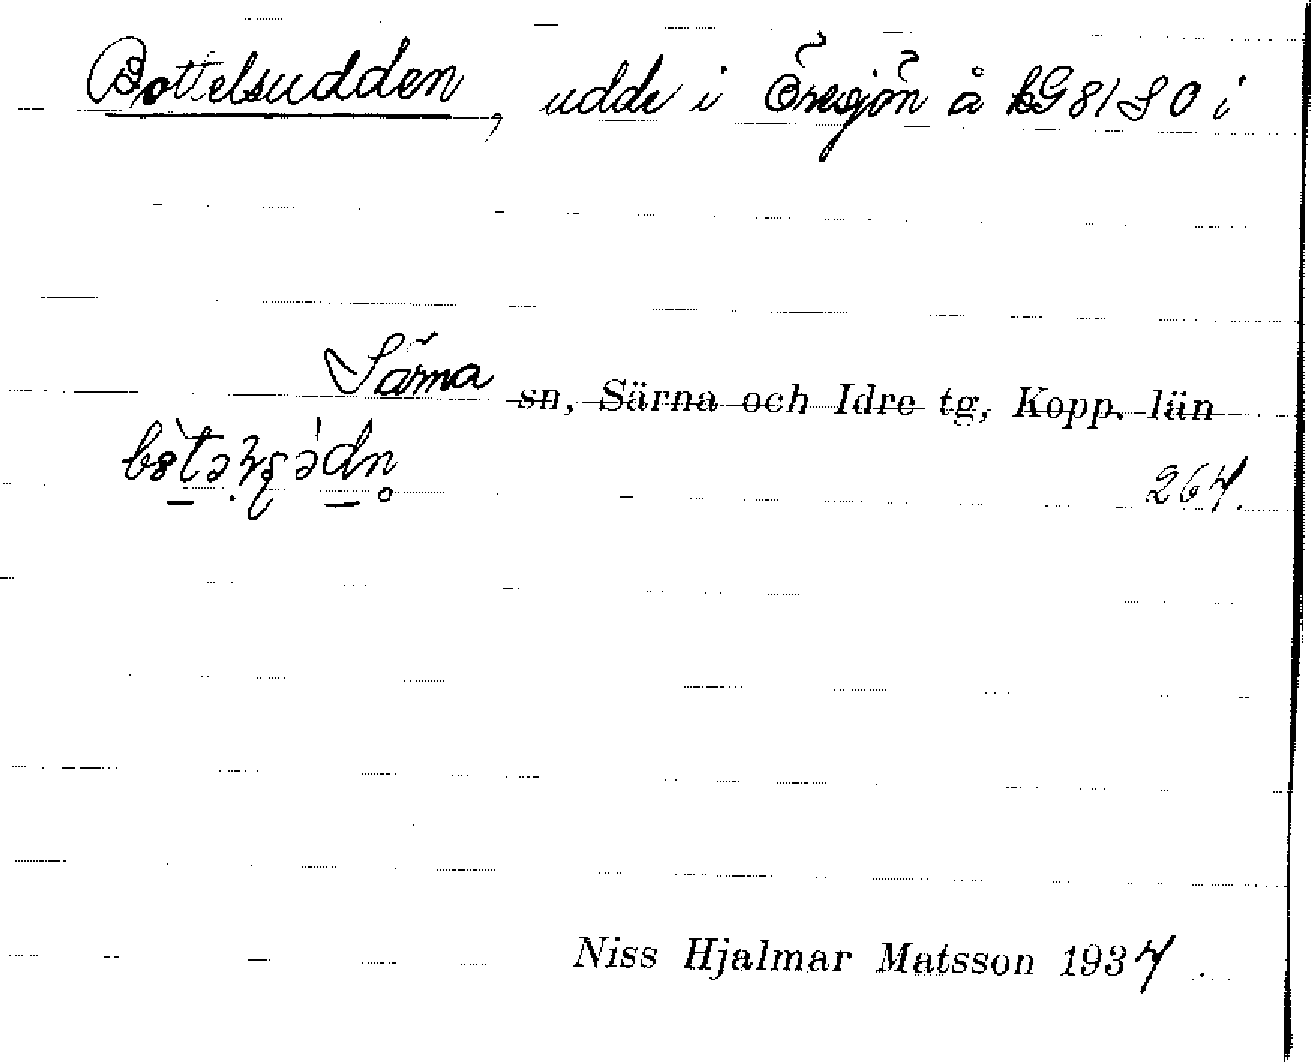 Bottelsudden, udde i Öresjön å kG 81 SO i
Särna sn, Särna och Idre tg, Kopp. län
264.
Niss Hjalmar Matsson 1934.